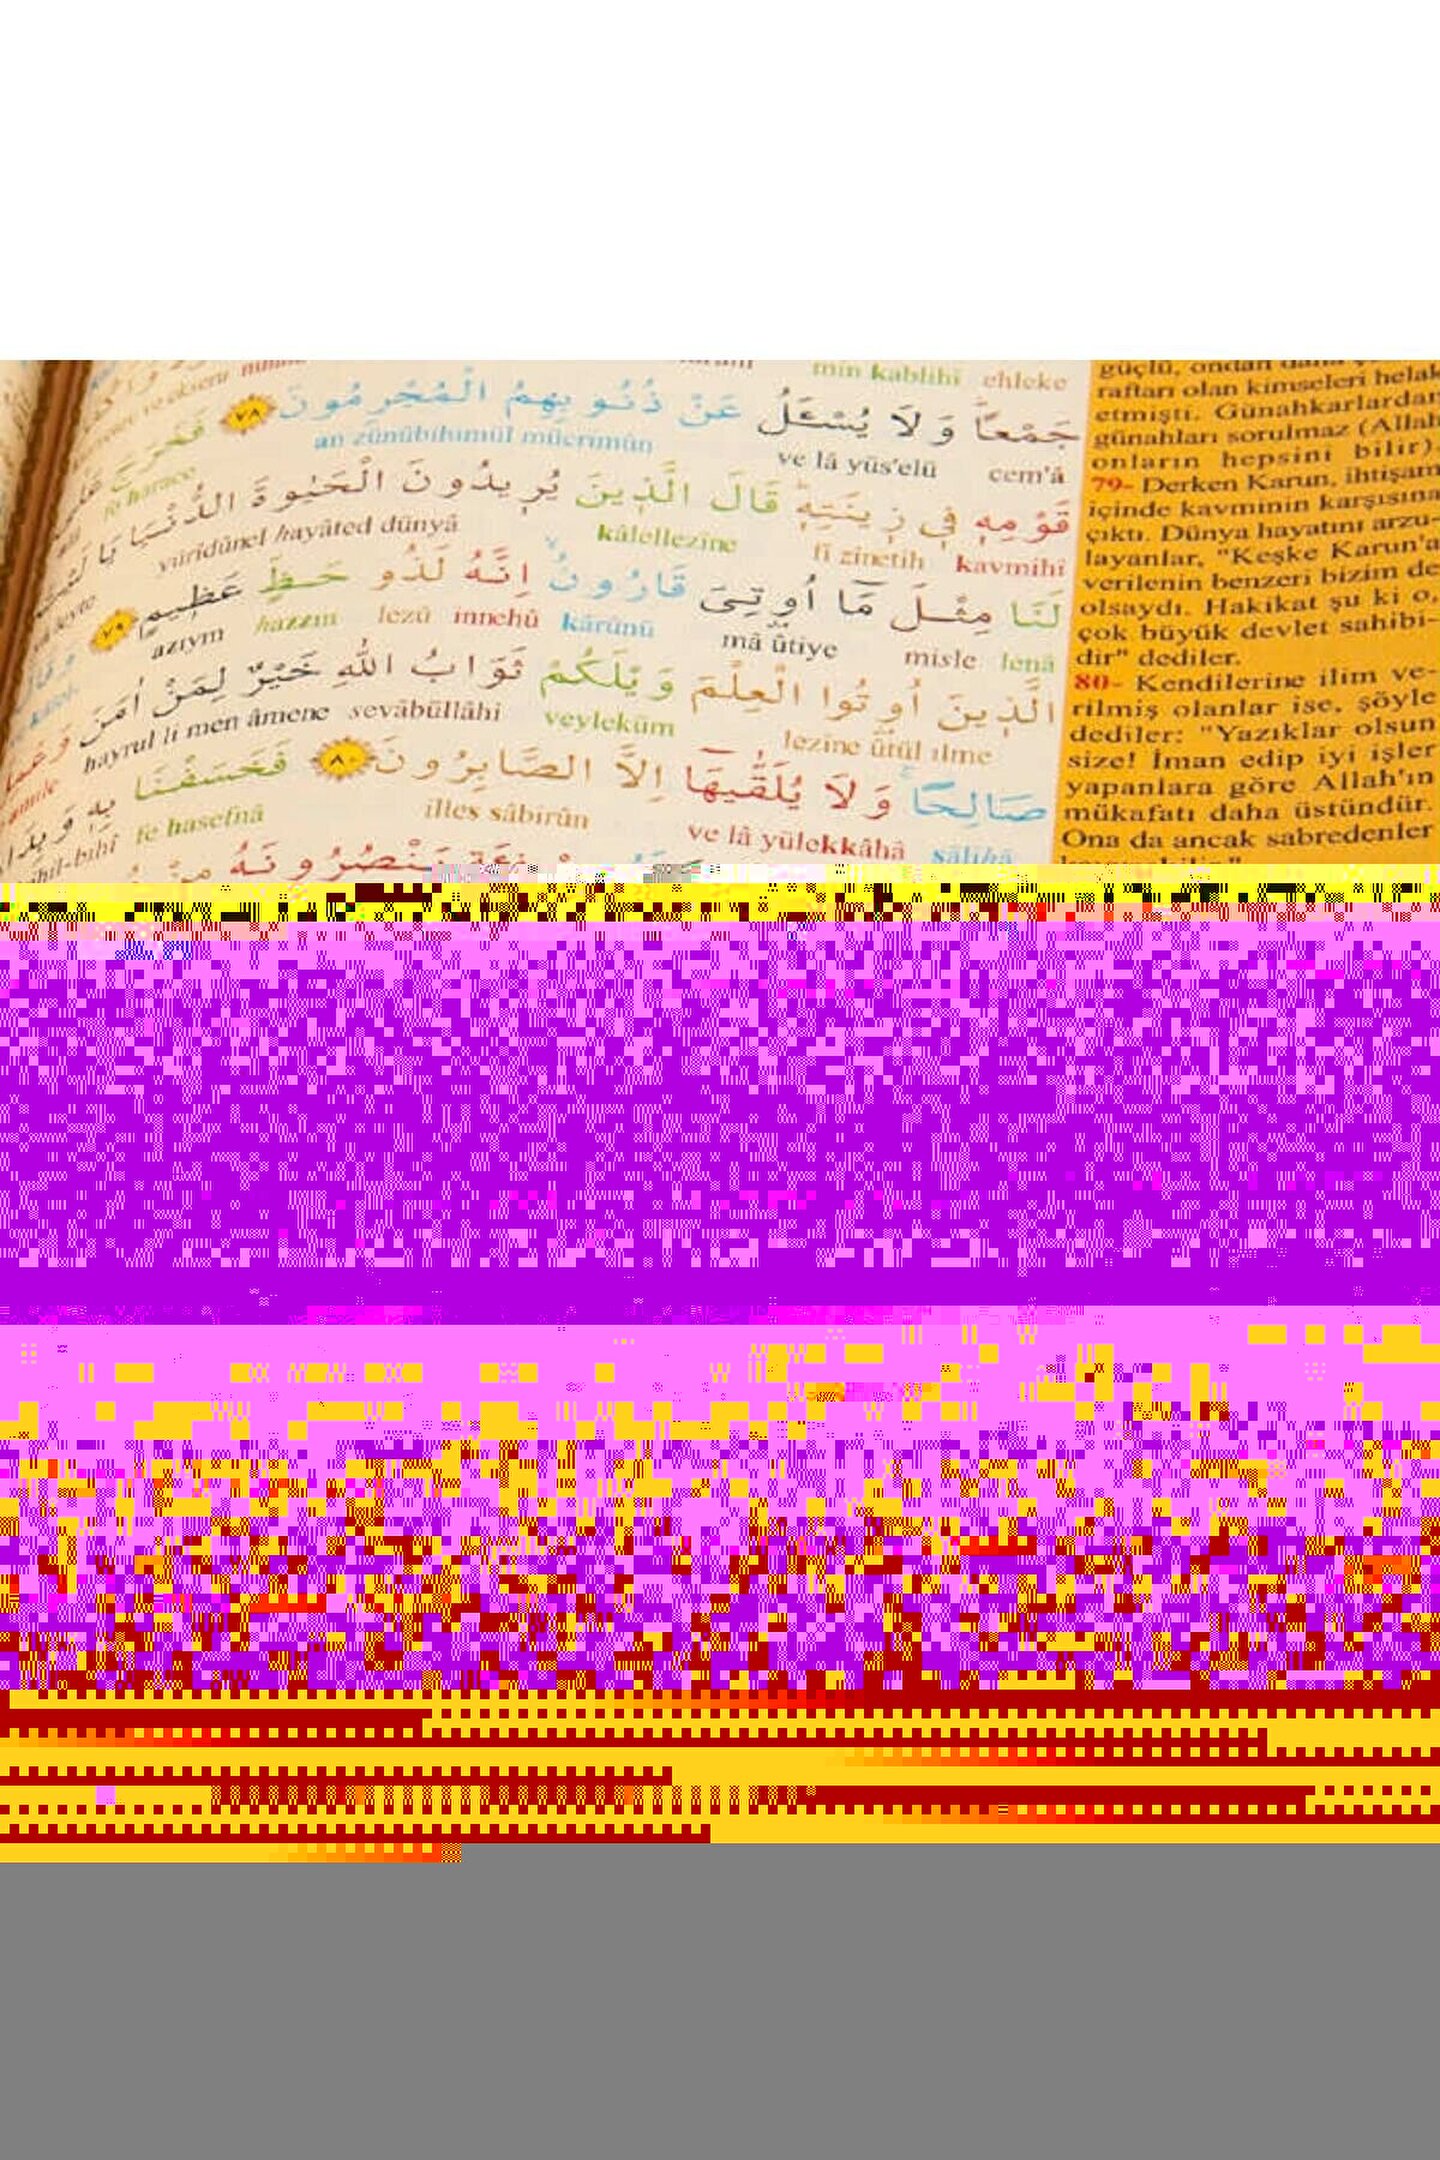 min kablihî ehleke
جَمْعًا وَلَا يُسْـَٔلُ عَنْ ذُنُوبِهِمُ الْمُجْرِمُونَ ٧٨
cem'â ve lâ yüs'elü an zünûbihimül mücrimûn
قَوْمِهِ فِي زِينَتِهِ قَالَ الَّذِينَ يُرِيدُونَ الْحَيٰوةَ الدُّنْيَا يَا
kavmihî fî zînetih kâlellezîne yürîdûnel hayâted dünyâ
لَنَا مِثْلَ مَا أُوتِيَ قَارُونُ إِنَّهُ لَذُو حَظٍّ عَظِيمٍ ٧٩
lenâ misle mâ ûtiye kârûnü innehû lezû hazzın azıym
الَّذِينَ أُوتُوا الْعِلْمَ وَيْلَكُمْ ثَوَابُ اللّٰهِ خَيْرٌ لِمَنْ اٰمَنَ
lezîne ûtül ılme veyleküm sevâbüllâhi hayrul li men âmene
صَالِحًا وَلَا يُلَقّٰيهَا إِلَّا الصَّابِرُونَ ٨٠ فَخَسَفْنَا
sâlihâ ve lâ yülekkâhâ illes sâbirûn fe hasefnâ
güçlü, ondan daha
rafları olan kimseleri helak
etmişti. Günahkarlardan
günahları sorulmaz (Allah
onların hepsini bilir).
79- Derken Karun, ihtişam
içinde kavminin karşısına
çıktı. Dünya hayatını arzu-
layanlar, "Keşke Karun'a
verilenin benzeri bizim de
olsaydı. Hakikat şu ki o,
çok büyük devlet sahibi-
dir" dediler.
80- Kendilerine ilim ve-
rilmiş olanlar ise, şöyle
dediler: "Yazıklar olsun
size! İman edip iyi işler
yapanlara göre Allah'ın
mükafatı daha üstündür.
Ona da ancak sabredenler